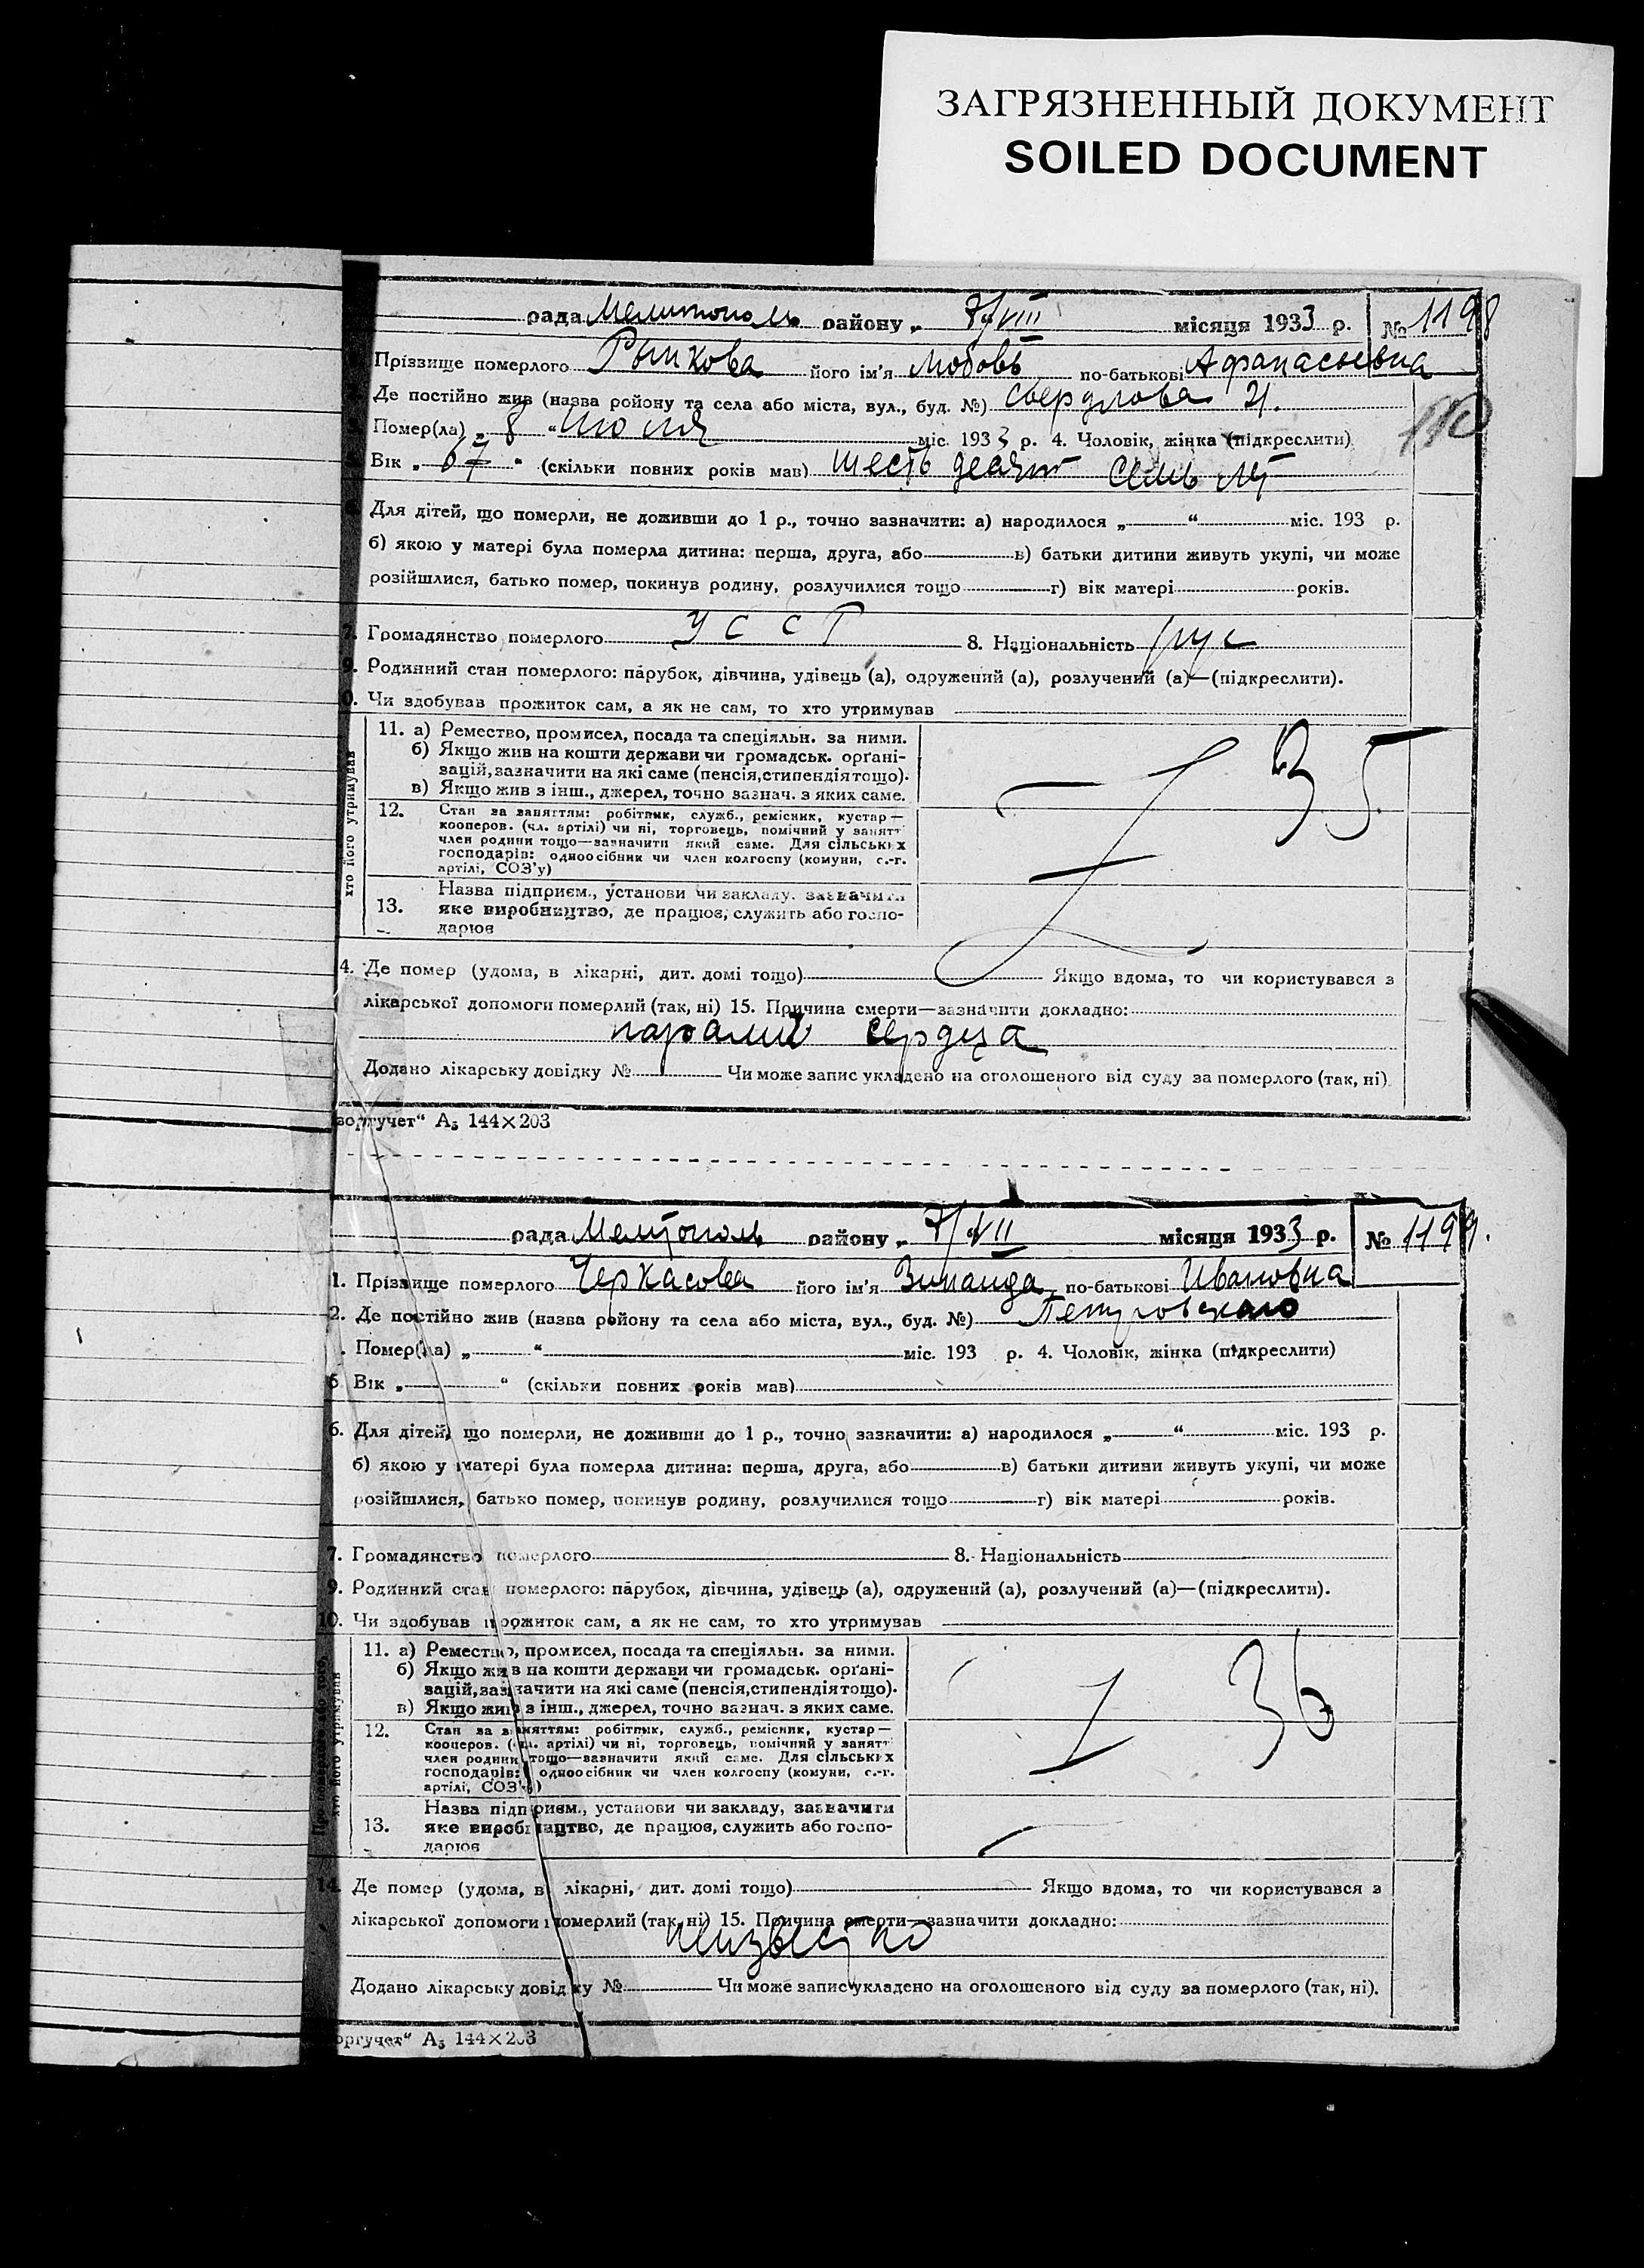 ЗАГРЯЗНЕННЫЙ ДОКУМЕНТ
SOILED DOCUMENT
рада Мелитополь району „ 7/VIII місяця 1933 р. № 1198
Прізвище померлого Рыпкова його ім'я Любовь по-батькові Афанасьевна
Де постійно жив (назва району та села або міста, вул., буд. №) Свердлова 21.
110
Помер(ла) „ 8 “ Июля міс. 1933 р. 4. Чоловік, жінка (підкреслити)
Вік „ 67 “ (скільки повних років мав) шесть десят семь лет
Для дітей, що померли, не доживши до 1 р., точно зазначити: а) народилося „ “ міс. 193 р.
б) якою у матері була померла дитина: перша, друга, або в) батьки дитини живуть укупі, чи може
розійшлися, батько помер, покинув родину, розлучилися тощо г) вік матері років.
7. Громадянство померлого УССР 8. Національність рус
9. Родинний стан померлого: парубок, дівчина, удівець (а), одружений (а), розлучений (а)—(підкреслити).
0. Чи здобував прожиток сам, а як не сам, то хто утримував
хто його утримував
11. а) Ремество, промисел, посада та спеціяльн. за ними.
б) Якщо жив на кошти держави чи громадськ. орґані-
зацій, зазначити на які саме (пенсія, стипендія тощо).
в) Якщо жив з інш., джерел, точно зазнач. з яких саме.
35
12. Стан за заняттям: робітник, служб., ремісник, кустар—
кооперов. (чл. артілі) чи ні, торговець, помічний у занятт
член родини тощо—зазначити який саме. Для сільських
господарів: одноосібник чи член колгоспу (комуни, с.-г.
артілі, СОЗ'у)
Назва підприєм., установи чи закладу, зазначити
13. яке виробництво, де працює, служить або госпо-
дарює
4. Де помер (удома, в лікарні, дит. домі тощо) Якщо вдома, то чи користувався з
лікарської допомоги померлий (так, ні) 15. Причина смерти—зазначити докладно:
паралич сердца
Додано лікарську довідку № Чи може запис укладено на оголошеного від суду за померлого (так, ні)
зоргучет“ А5 144×203
рада Мелитополь району „ 7/VII місяця 1933 р. № 1199.
1. Прізвище померлого Черкасова його ім'я Зинаида по-батькові Ивановна
2. Де постійно жив (назва району та села або міста, вул., буд. №) Петровского
. Помер(ла) „ “ міс. 193 р. 4. Чоловік, жінка (підкреслити)
5 Вік „ “ (скільки повних років мав)
6. Для дітей, що померли, не доживши до 1 р., точно зазначити: а) народилося „ “ міс. 193 р.
б) якою у матері була померла дитина: перша, друга, або в) батьки дитини живуть укупі, чи може
розійшлися, батько помер, покинув родину, розлучилися тощо г) вік матері років.
7. Громадянство померлого 8. Національність
9. Родинний стан померлого: парубок, дівчина, удівець (а), одружений (а), розлучений (а)—(підкреслити).
10. Чи здобував прожиток сам, а як не сам, то хто утримував
хто його утримував
11. а) Ремество, промисел, посада та спеціяльн. за ними.
б) Якщо жив на кошти держави чи громадськ. орґані-
зацій, зазначити на які саме (пенсія, стипендія тощо).
в) Якщо жив з інш., джерел, точно зазнач. з яких саме.
36
12. Стан за заняттям: робітник, служб., ремісник, кустар—
кооперов. (чл. артілі) чи ні, торговець, помічний у занятт
член родини тощо—зазначити який саме. Для сільських
господарів: одноосібник чи член колгоспу (комуни, с.-г.
артілі, СОЗ'у)
Назва підприєм., установи чи закладу, зазначити
13. яке виробництво, де працює, служить або госпо-
дарює
14 Де помер (удома, в лікарні, дит. домі тощо) Якщо вдома, то чи користувався з
лікарської допомоги померлий (так, ні) 15. Причина смерти—зазначити докладно:
неизвестно
Додано лікарську довідку № Чи може запис укладено на оголошеного від суду за померлого (так, ні).
оргучет“ А5 144×203